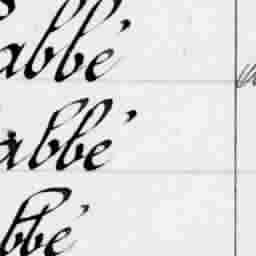 abbé
abbé
bbé